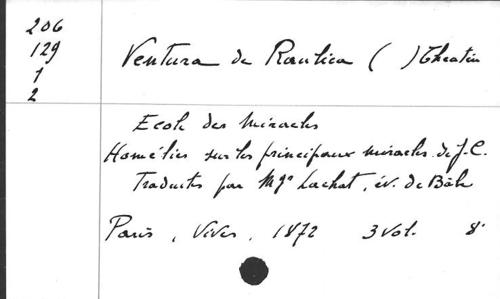 206
129
1
2
Ventura de Raulica ( ) Théatin
Ecole des Miracles
Homélies sur les principaux miracles de J. C.
Traduites par Mgr Lachat, év. de Bâle
Paris, Vivès, 1872 3 Vol. 8°